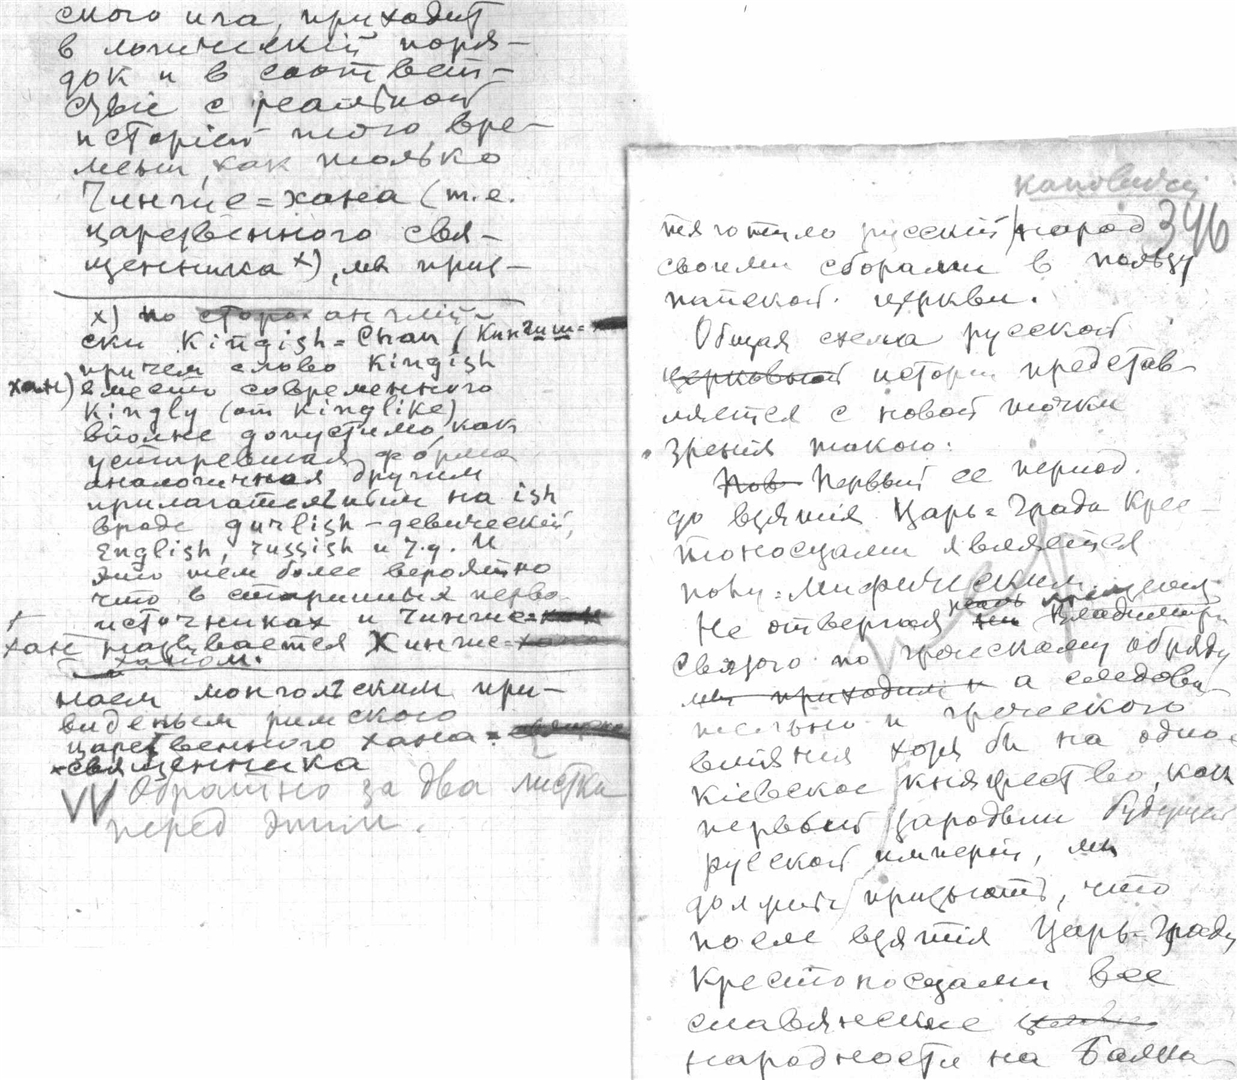 ского ига, приходит
в логический поря-
док и в соответ-
ствие с реальной
историей того вре-
мени, как только
Чингис=хана (т.е.
царственного свя-
щенника х), мы приз-
х) по сторо англий-
ски Kingish=Chan (Кингиш=
причем слово Kingish
хан) вместо современного
Kingly (от Kinglike)
вполне допустимо, как
устаревшая форма
аналогичная другим
прилагательным на ish
вроде gurlish-девический,
English, russish и т.д. И
это тем более вероятно
что в старинных перво-
источниках и Чингис=хан
хан называется Хингис=хано
ханом.
наем монгольским при-
виденьем римского
царственного хана=
-священника
VV Обратно за два листка
перед этим.
346
тяготило русский народ
своими сборами в пользу
папской церкви.
Общая схема русской
церковной истории представ-
ляется с новой точки
зрения такою:
Пов Первый ее период
до взятия Царь=Града Крес-
тоносцами является
полу=мифическим
Не отвергая Владимира
Святого по греческому обряду
мы приходим к а следова-
тельно и греческого
влияния хотя бы на одно
Кiевское княжество, как
первый зародыш будущей
русской империи, мы
должны признать, что
после взятия Царь-Града
Крестоносцами все
славянские
народности на Балка-